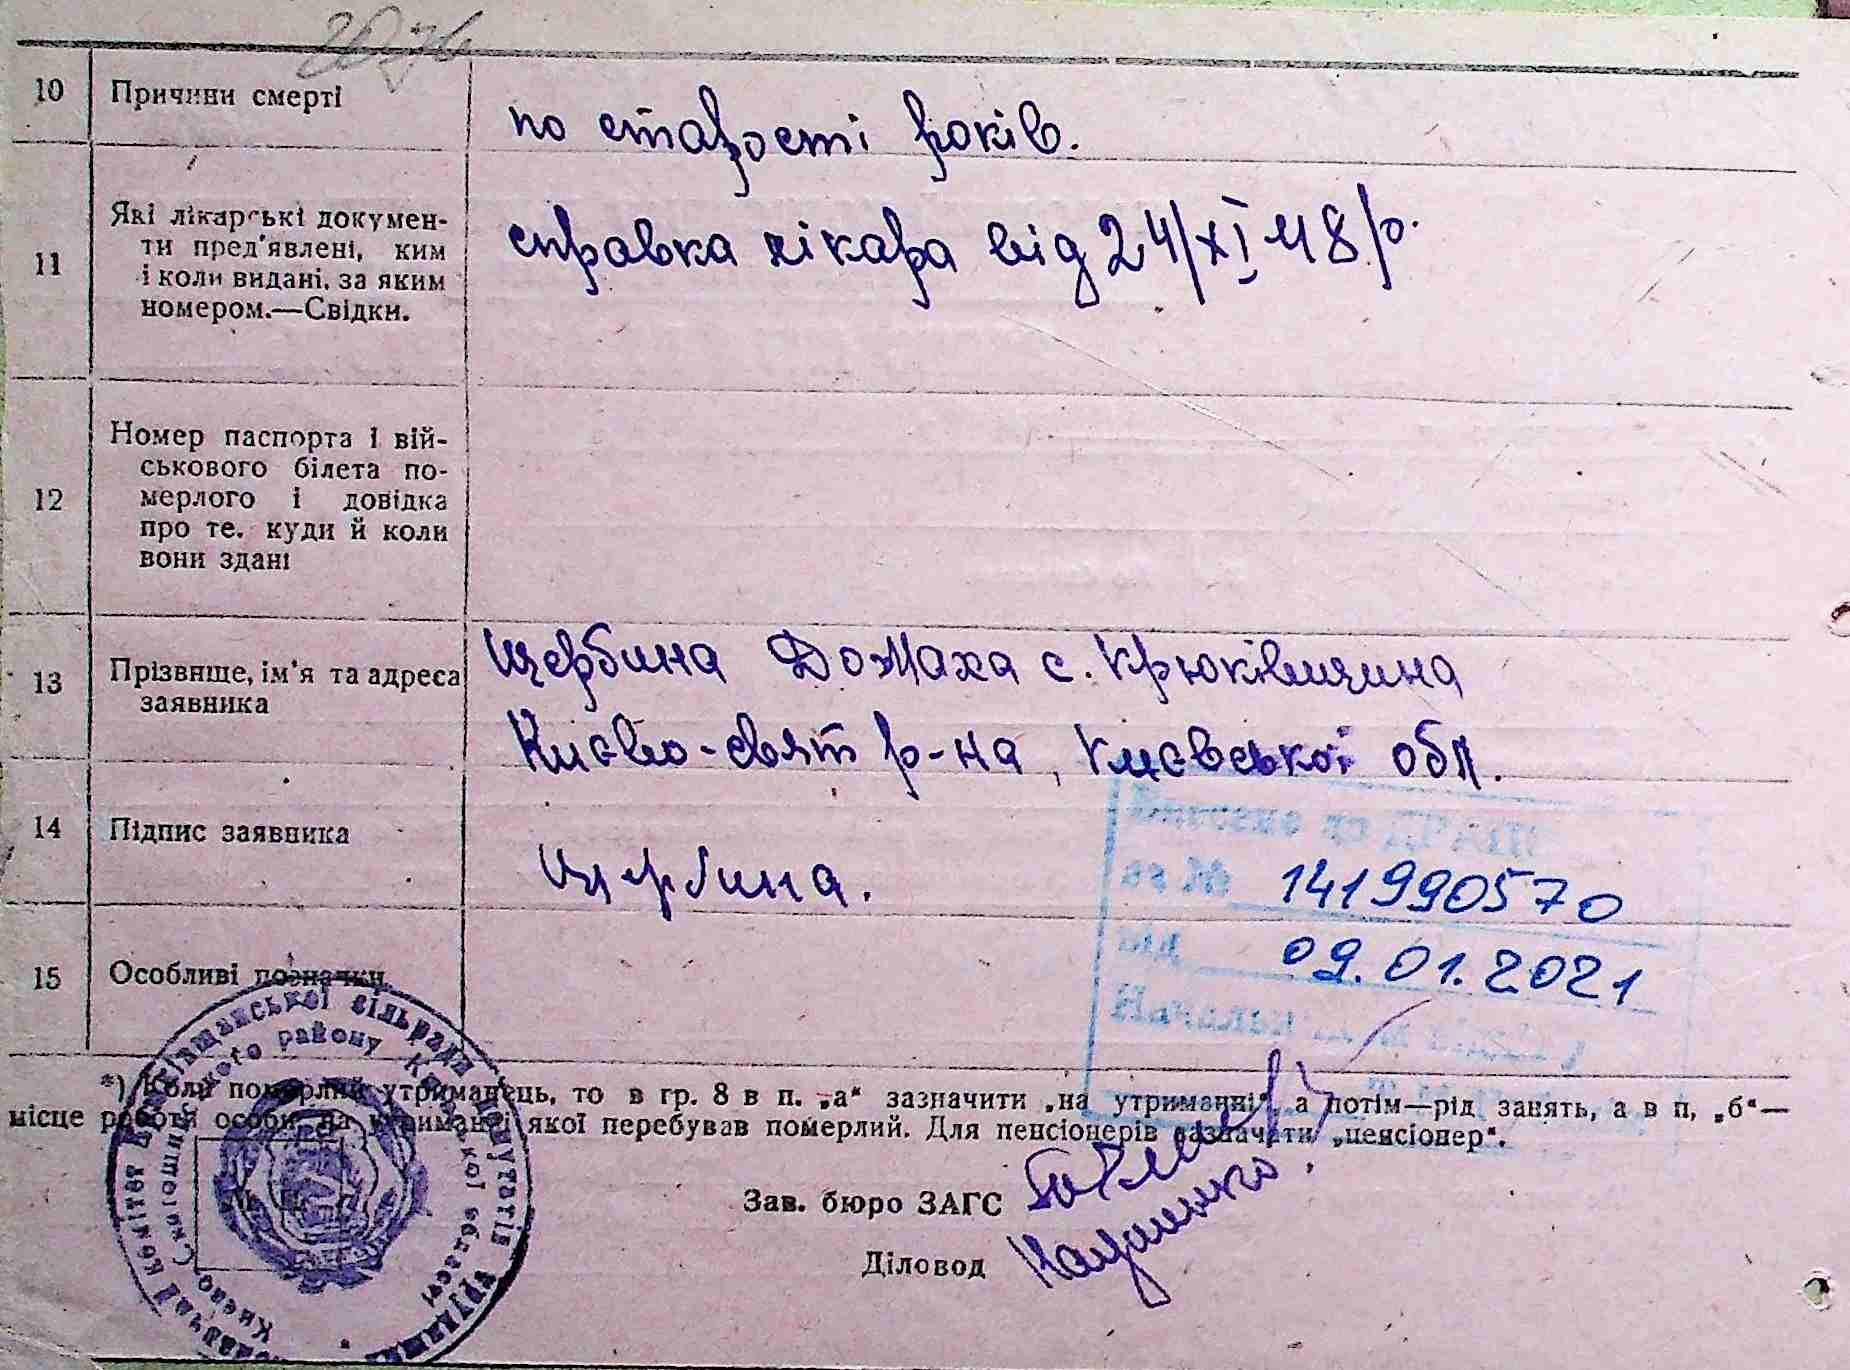 10 Причини смерті
по старості років.
11 Які лікарські докумен-
ти пред'явлені, ким
і коли видані, за яким
номером.—Свідки.
справка лікара від 24/XI 48 р.
12 Номер паспорта і вій-
ськового білета по-
мерлого і довідка
про те, куди й коли
вони здані
13 Прізвище, ім'я та адреса
заявника
Щербина Домаха с. Крюківщина
Києво-свят р-на, Києвської обл.
14 Підпис заявника
Щербина.
141990570
від 09.01.2021
15 Особливі позначки
*) Коли померлий утриманець, то в гр. 8 в п. „а“ зазначити „на утриманні“, а потім—рід занять, а в п, „б“—
місце роботи особи, на утриманні якої перебував померлий. Для пенсіонерів зазначати „пенсіонер“.
Зав. бюро ЗАГС
Діловод
сільради депутатів трудящих
району Київської області
комітет